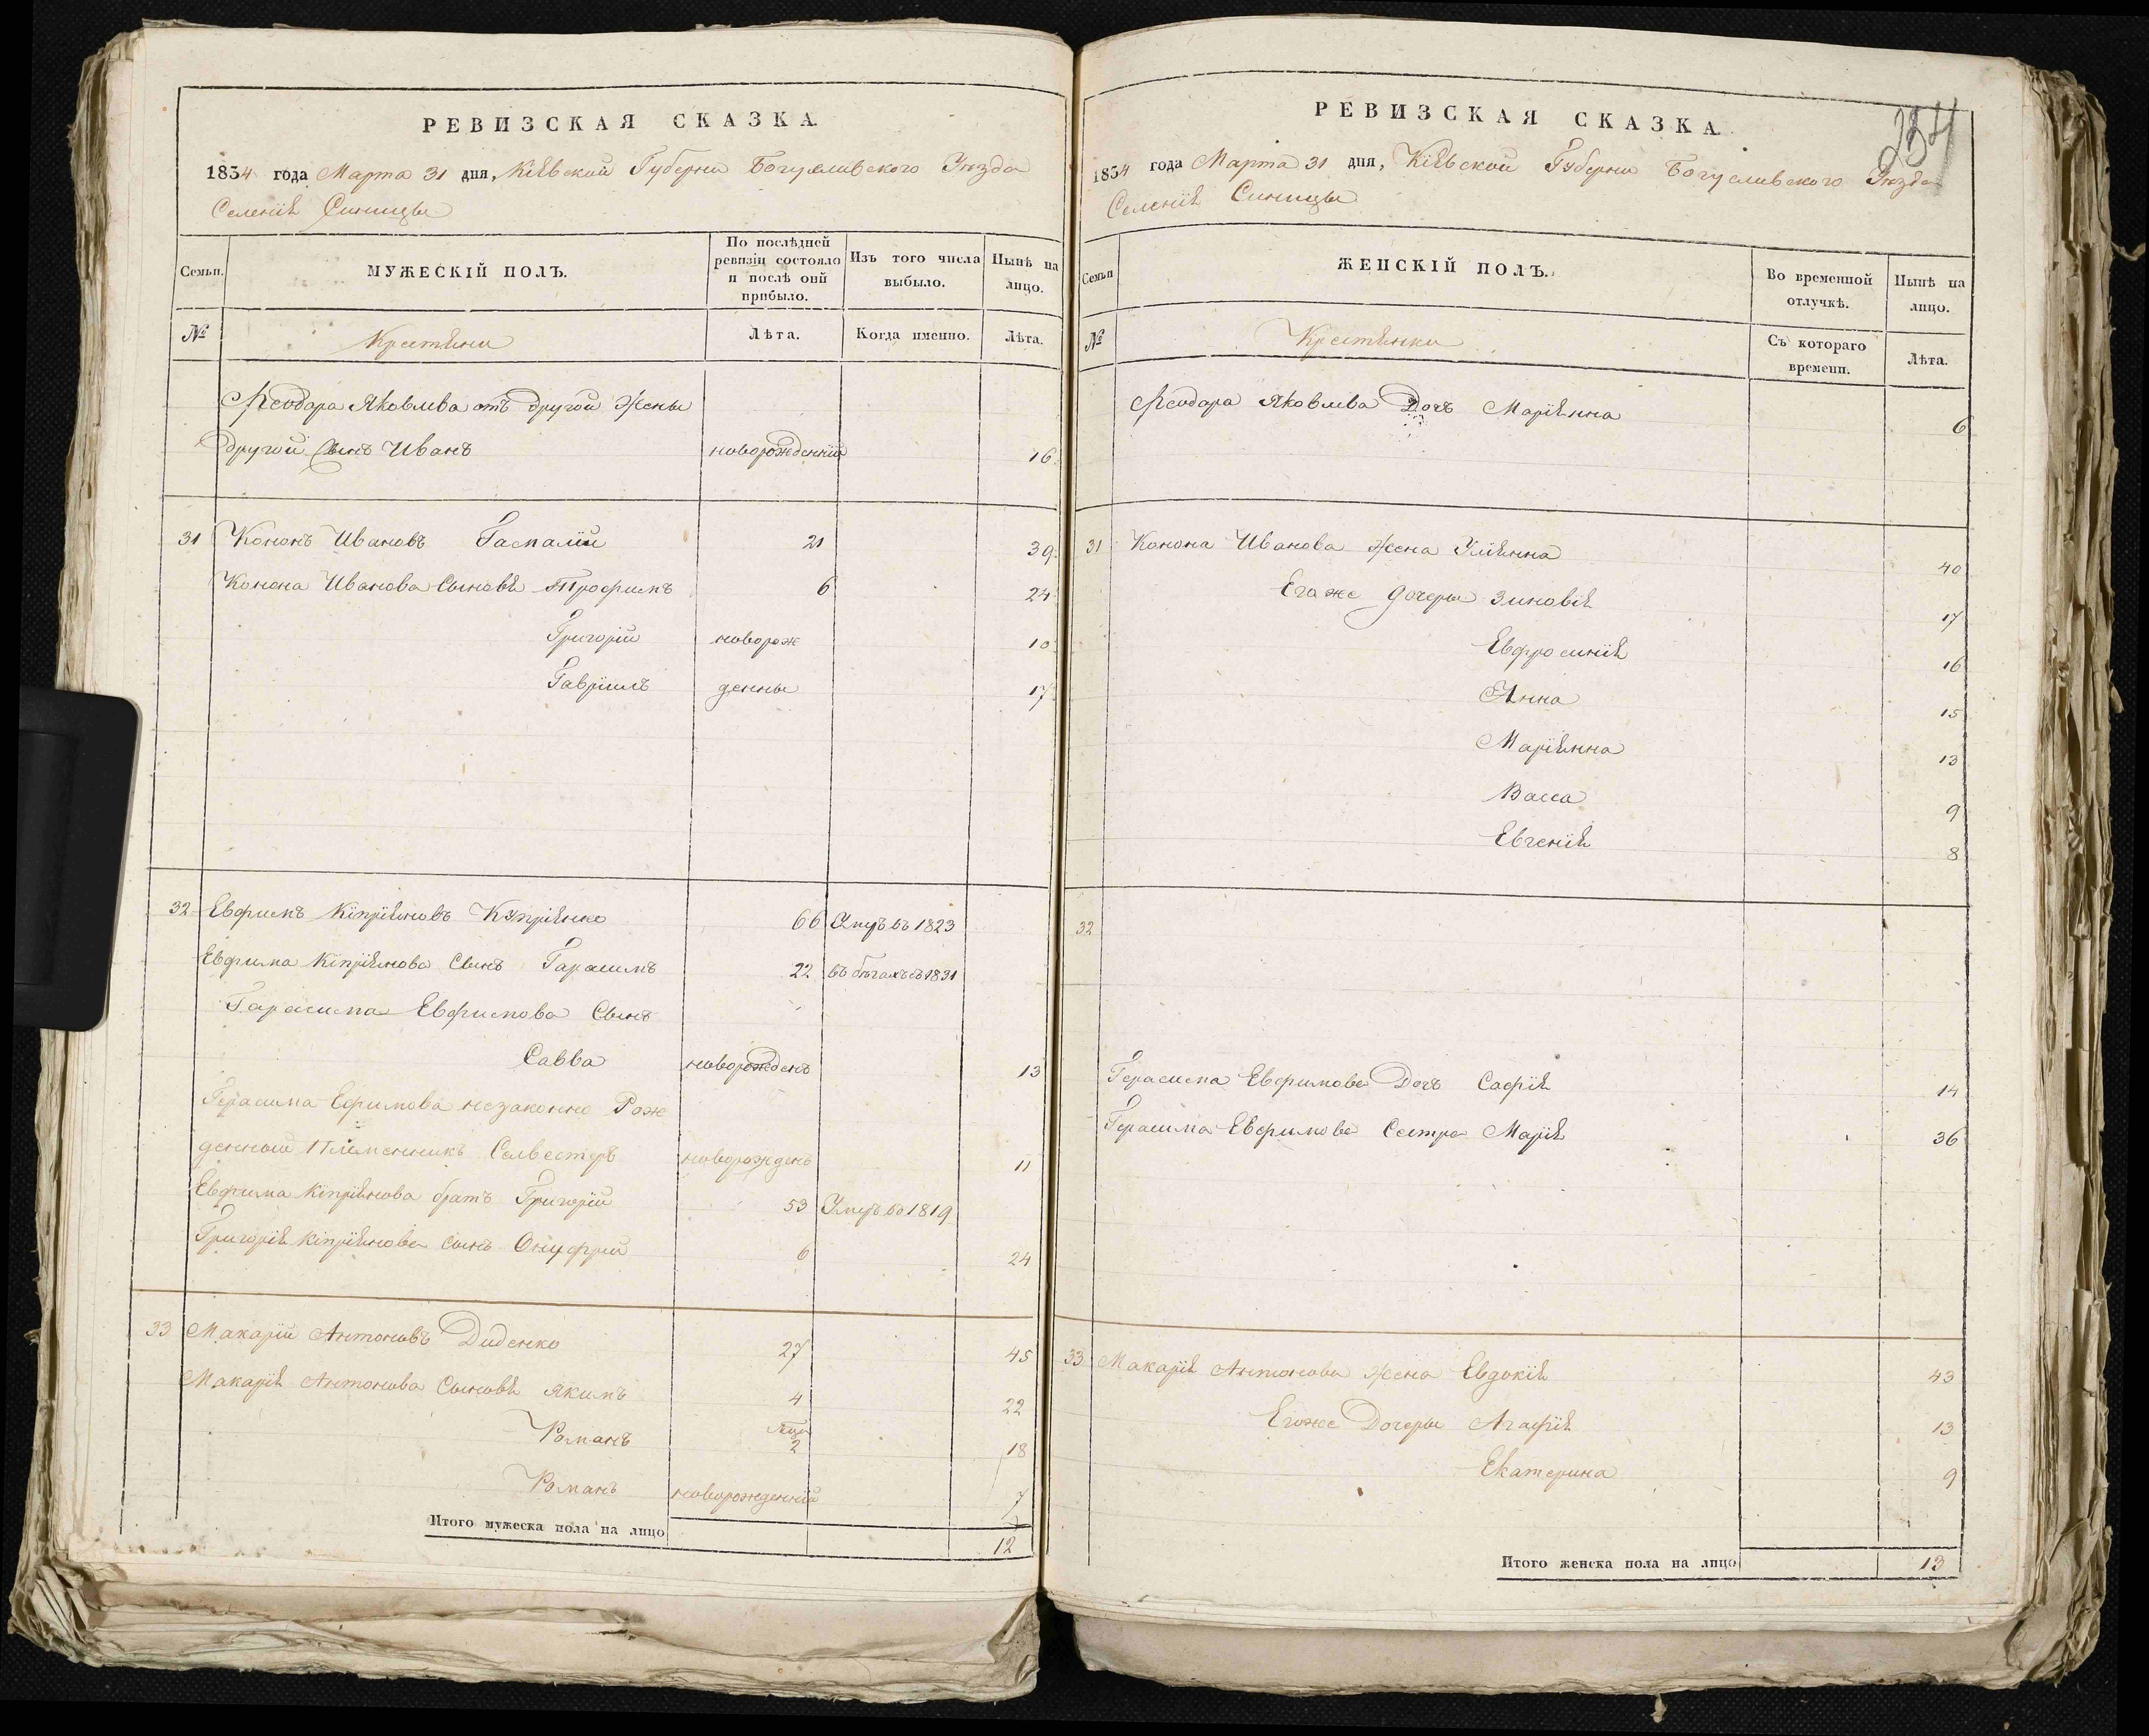 РЕВИЗСКАЯ СКАЗКА.
1834 года Марта 31 дня, Кіевской Губерни Богуславского Уезда
Селенія Синицы
Семьи.
МУЖЕСКІЙ ПОЛЪ.
По послѣдней ревизіи состояло и послѣ оній прибыло.
Изъ того числа выбыло.
Нынѣ на лицо.
№
Крестяни
Лѣта.
Когда именно.
Лѣта.
Феодора Яковлева отъ другой жены
другой Сынъ Иванъ новорожденній 16
31 Кононъ Ивановъ 21 39
Конона Иванова Сыновя Трофимъ 6 24
Григорій новорож 10
Гавріилъ денны 17
32 Евфимъ Кипріяновъ Купріянко 66 Умеръ въ 1823
Евфима Кипріянова Сынъ Гарасимъ 22 въ бѣгахъ съ 1831
Гарасима Евфимова Сынъ
Савва новорожденъ 13
Герасима Ефимова незаконно Рож
денный Племенникъ Селвестеръ новорожденъ 11
Евфима Кипріянова братъ Григорій 53 Умеръ въ 1819
Григорія Кипріянова сынъ Онуфрій 6 24
33 Макарій Антоновъ Диденко 27 45
Макарія Антонова Сыновя Якимъ 4 22
Романъ 2 18
Романъ новорожденній 7
Итого мужеска пола на лицо 12
254
РЕВИЗСКАЯ СКАЗКА.
1834 года Марта 31 дня, Кіевской Губерни Богуславского Уезда
Селенія Синицы
Семьи
ЖЕНСКІЙ ПОЛЪ.
Во временной отлучкѣ.
Нынѣ на лицо.
№
Крестянки
Съ котораго времени.
Лѣта.
Феодора Яковлева Дочъ Маріянна 6
31 Конона Иванова жена Уліянна 40
Егоже дочеры Зиновія 17
Евфросинія 16
Анна 15
Маріянна 13
Васса 9
Евгенія 8
32
Герасима Евфимова Дочъ Софія 14
Герасима Евфимова Сестра Марія 36
33 Макарія Антонова Жена Евдокія 43
Егоже Дочеры Агафія 13
Екатерина 9
Итого женска пола на лицо 13